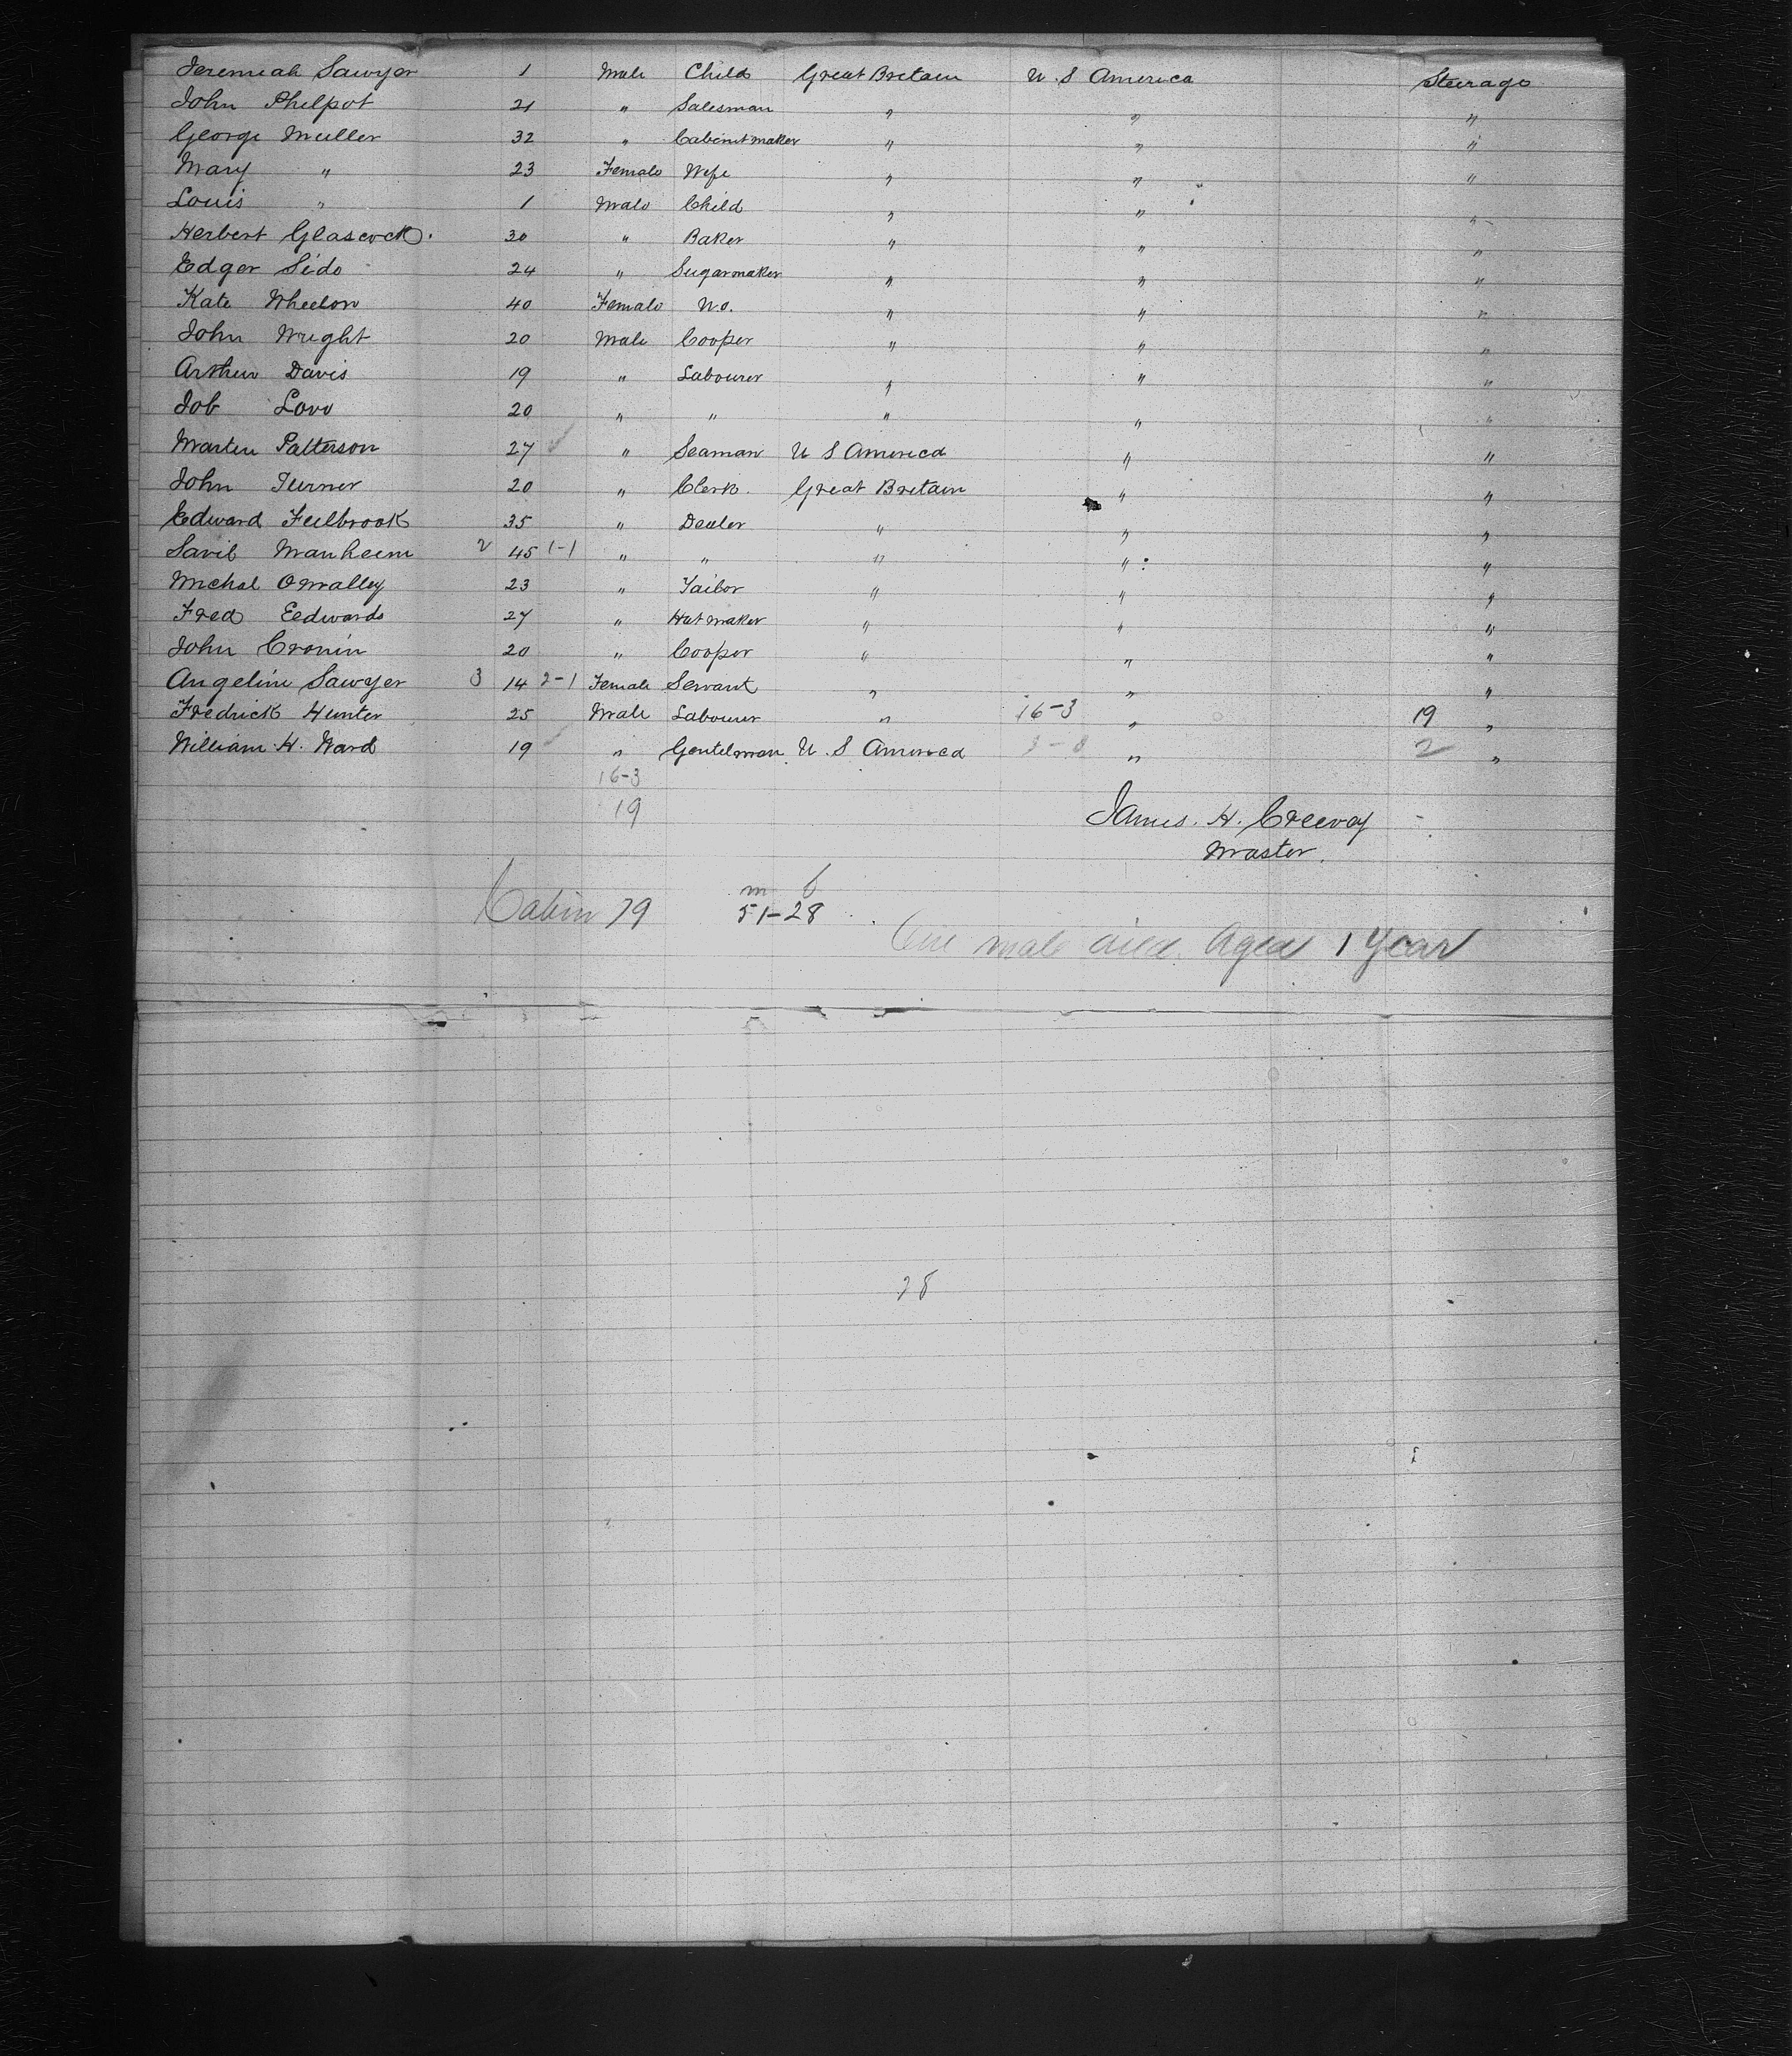 Jeremiah Sawyer 1 Male Child Great Britain U. S America Steerage
John Philpot 21 " Salesman " " "
George Muller 32 " Cabinetmaker " " "
Mary " 23 Female Wife " " "
Louis " 1 Male Child " " "
Herbert Glascock 30 " Baker " " "
Edger Sido 24 " Sugarmaker " " "
Kate Wheelon 40 Female No. " " "
John Wright 20 Male Cooper " " "
Arthur Davis 19 " Labourer " " "
Job Love 20 " " " " "
Martin Patterson 27 " Seaman U S America " "
John Turner 20 " Clerk. Great Britain " "
Edward Fulbrook 35 " Dealer " " "
Savil Manheim 2 45 1-1 " " " " "
Michal OMalley 23 " Tailor " " "
Fred Eedwards 27 " Hatmaker " " "
John Cronin 20 " Cooper " " "
Angeline Sawyer 3 14 2-1 Female Servant " " "
Fredrick Hunter 25 Male Labourer " 16-3 " 19 "
William H. Ward 19 " Gentelman U. S America " 2 "
16-3
19
James. H. Creevoy
Master.
m f
Cabin 79 51-28
One male died. Aged 1 year
28